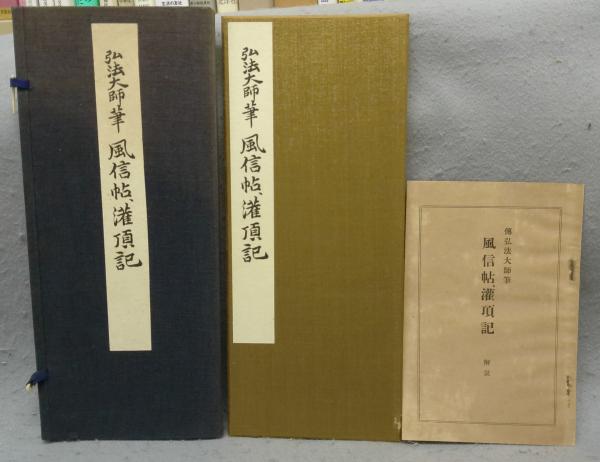 弘法大師筆 風信帖、灌頂記
弘法大師筆 風信帖、灌頂記
傳弘法大師筆
風信帖、灌頂記
解説